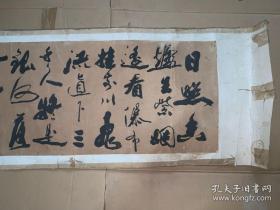 日照香
爐生紫烟
遥看瀑布
挂前川飛
流直下三
千尺疑是
銀河落
孔夫子旧书网